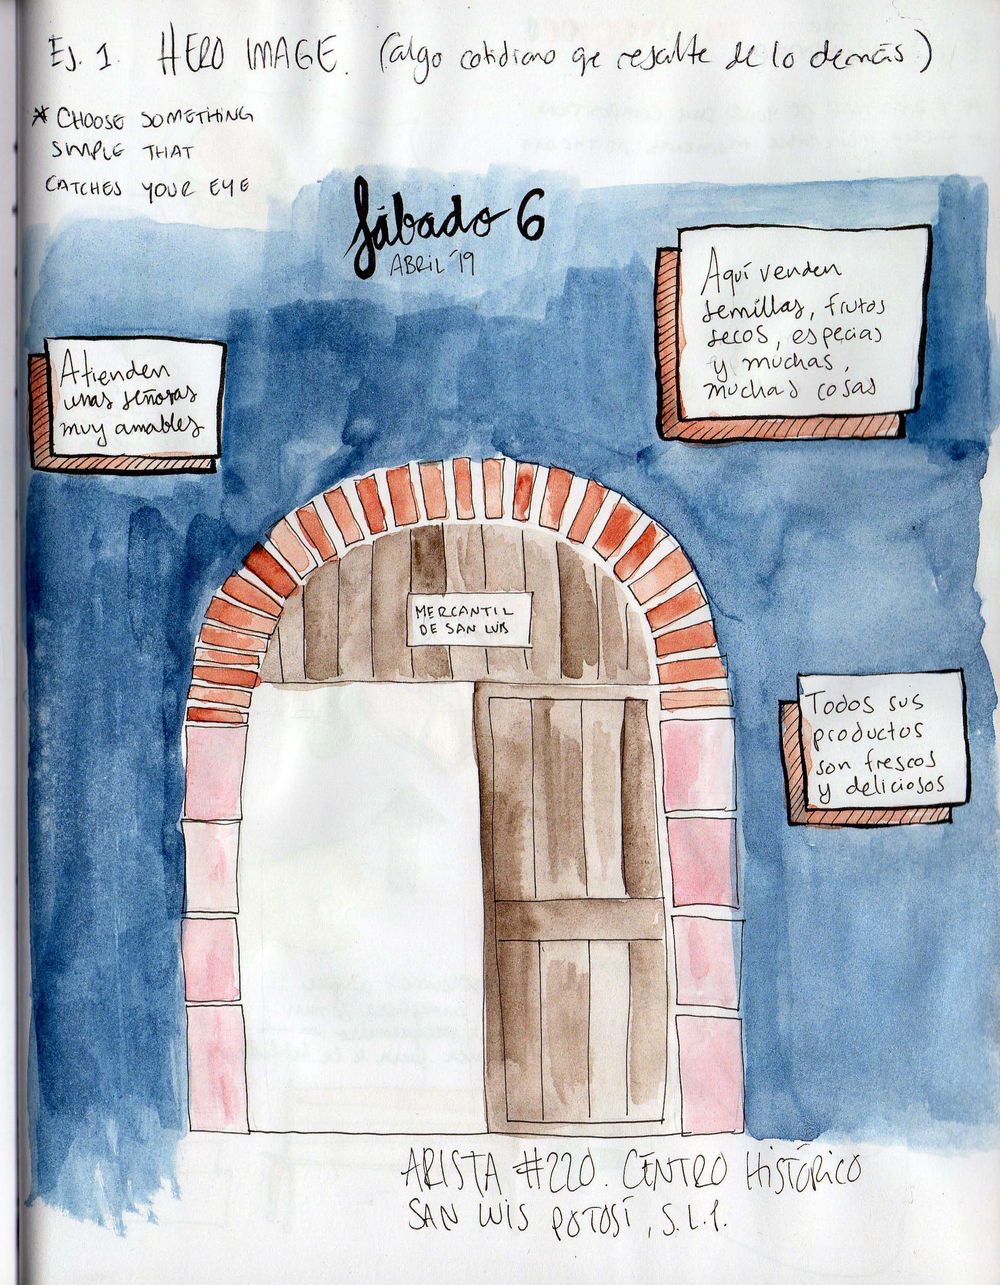 Ej. 1. HERO IMAGE. (algo cotidiano qe resalte de lo demás)
* CHOOSE SOMETHING
SIMPLE THAT
CATCHES YOUR EYE
Sábado 6
ABRIL '19
Aquí venden
semillas, frutos
secos, especias
y muchas,
muchas cosas
Atienden
unas señoras
muy amables
MERCANTIL
DE SAN LUIS
Todos sus
productos
son frescos
y deliciosos
ARISTA #220. CENTRO HISTÓRICO
SAN LUIS POTOSÍ, S.L.P.